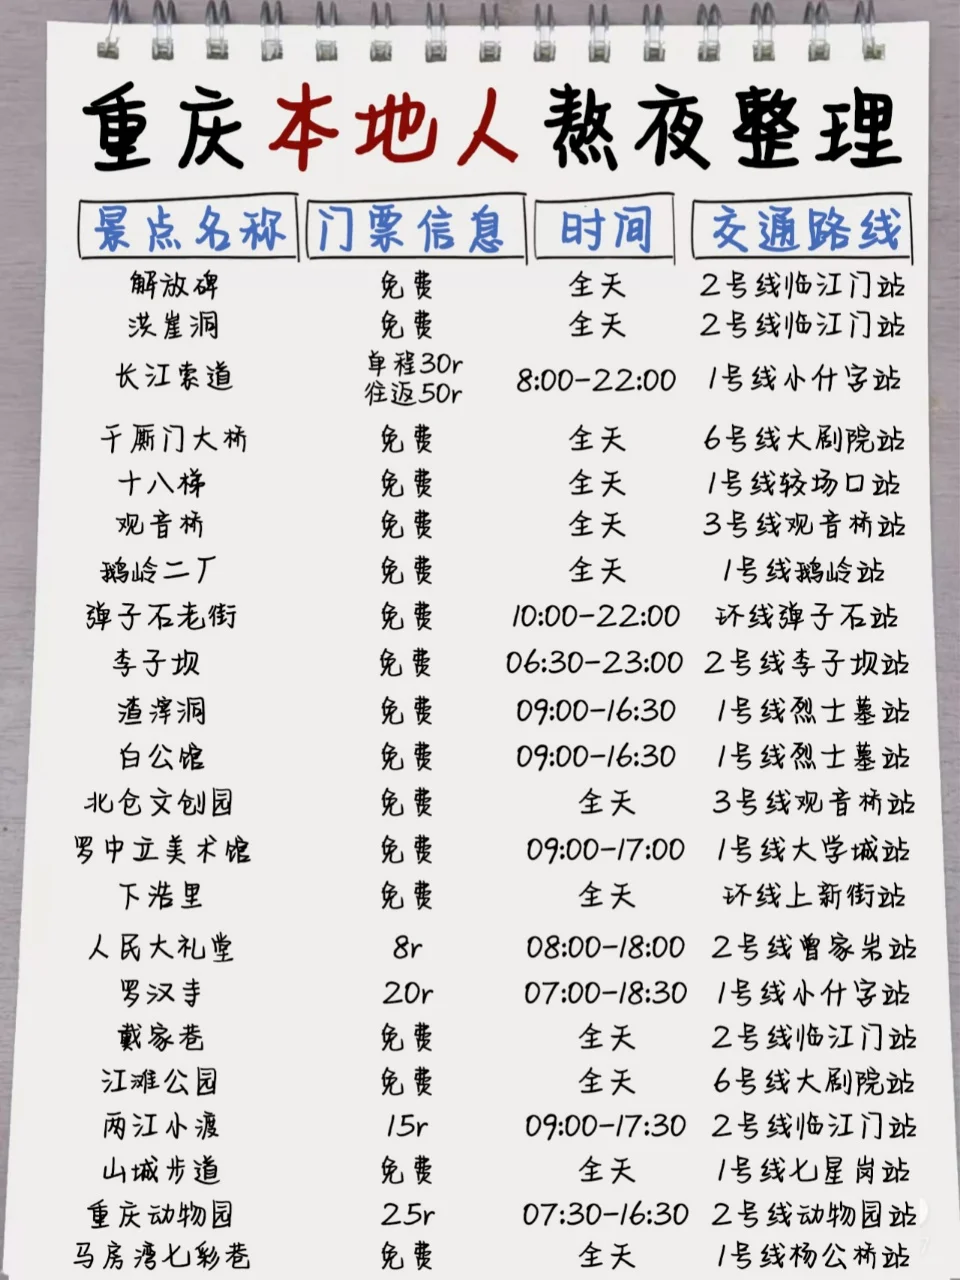 重庆本地人熬夜整理
景点名称 门票信息 时间 交通路线
解放碑 免费 全天 2号线临江门站
洪崖洞 免费 全天 2号线临江门站
长江索道 单程30r 往返50r 8:00-22:00 1号线小什字站
千厮门大桥 免费 全天 6号线大剧院站
十八梯 免费 全天 1号线较场口站
观音桥 免费 全天 3号线观音桥站
鹅岭二厂 免费 全天 1号线鹅岭站
弹子石老街 免费 10:00-22:00 环线弹子石站
李子坝 免费 06:30-23:00 2号线李子坝站
渣滓洞 免费 09:00-16:30 1号线烈士墓站
白公馆 免费 09:00-16:30 1号线烈士墓站
北仓文创园 免费 全天 3号线观音桥站
罗中立美术馆 免费 09:00-17:00 1号线大学城站
下浩里 免费 全天 环线上新街站
人民大礼堂 8r 08:00-18:00 2号线曾家岩站
罗汉寺 20r 07:00-18:30 1号线小什字站
戴家巷 免费 全天 2号线临江门站
江滩公园 免费 全天 6号线大剧院站
两江小渡 15r 09:00-17:30 2号线临江门站
山城步道 免费 全天 1号线七星岗站
重庆动物园 25r 07:30-16:30 2号线动物园站
马房湾七彩巷 免费 全天 1号线杨公桥站